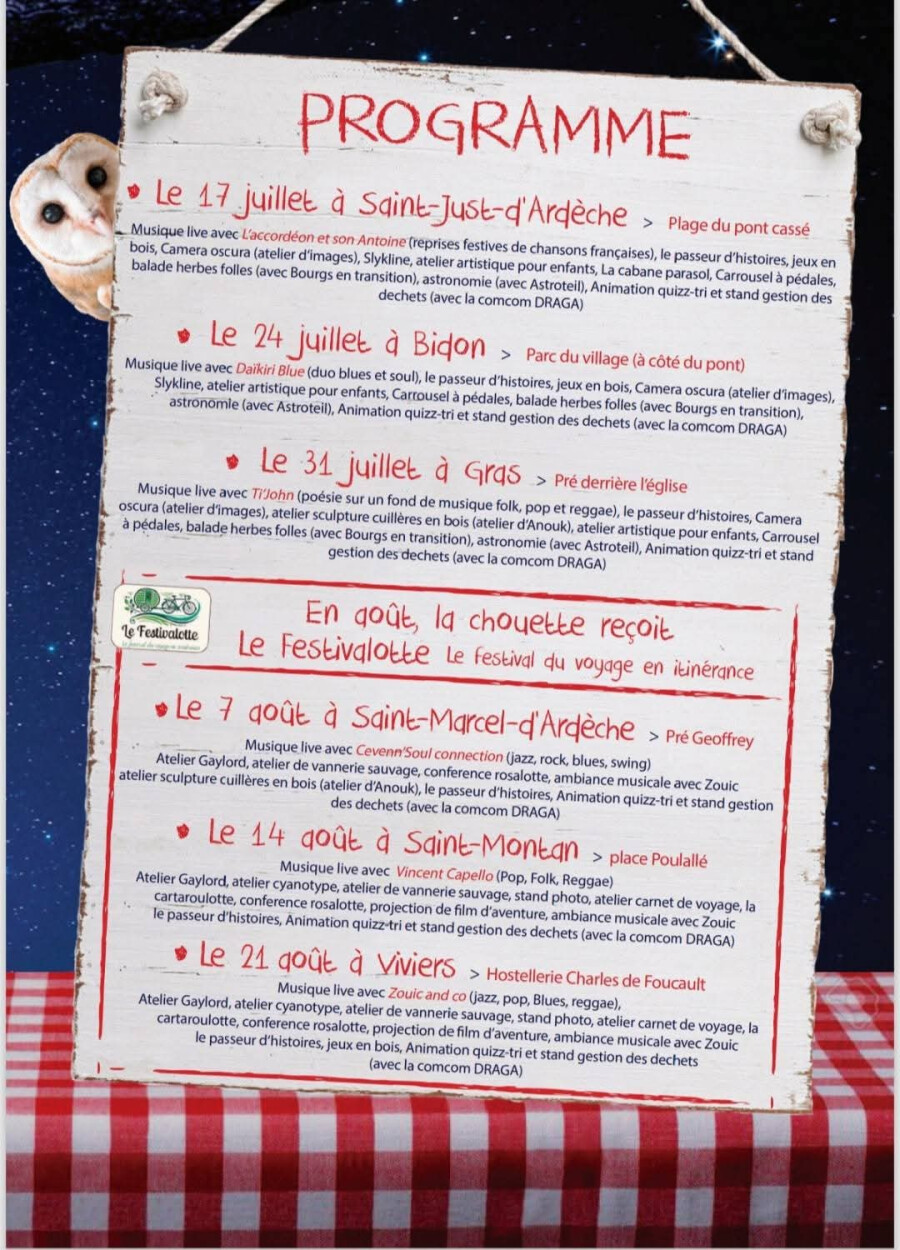 PROGRAMME
Le 17 juillet à Saint-Just-d'Ardèche > Plage du pont cassé
Musique live avec L'accordéon et son Antoine (reprises festives de chansons françaises), le passeur d'histoires, jeux en
bois, Camera oscura (atelier d'images), Slykline, atelier artistique pour enfants, La cabane parasol, Carrousel à pédales,
balade herbes folles (avec Bourgs en transition), astronomie (avec Astroteil), Animation quizz-tri et stand gestion des
dechets (avec la comcom DRAGA)
Le 24 juillet à Bidon > Parc du village (à côté du pont)
Musique live avec Daïkiri Blue (duo blues et soul), le passeur d'histoires, jeux en bois, Camera oscura (atelier d'images),
Slykline, atelier artistique pour enfants, Carrousel à pédales, balade herbes folles (avec Bourgs en transition),
astronomie (avec Astroteil), Animation quizz-tri et stand gestion des dechets (avec la comcom DRAGA)
Le 31 juillet à Gras > Pré derrière l'église
Musique live avec Ti'John (poésie sur un fond de musique folk, pop et reggae), le passeur d'histoires, Camera
oscura (atelier d'images), atelier sculpture cuillères en bois (atelier d'Anouk), atelier artistique pour enfants, Carrousel
à pédales, balade herbes folles (avec Bourgs en transition), astronomie (avec Astroteil), Animation quizz-tri et stand
gestion des dechets (avec la comcom DRAGA)
Le Festivalotte
En août, la chouette reçoit
Le Festivalotte Le festival du voyage en itinérance
Le 7 août à Saint-Marcel-d'Ardèche > Pré Geoffrey
Musique live avec Cevenn'Soul connection (jazz, rock, blues, swing)
Atelier Gaylord, atelier de vannerie sauvage, conference rosalotte, ambiance musicale avec Zouic
atelier sculpture cuillères en bois (atelier d'Anouk), le passeur d'histoires, Animation quizz-tri et stand gestion
des dechets (avec la comcom DRAGA)
Le 14 août à Saint-Montan > place Poulallé
Musique live avec Vincent Capello (Pop, Folk, Reggae)
Atelier Gaylord, atelier cyanotype, atelier de vannerie sauvage, stand photo, atelier carnet de voyage, la
cartaroulotte, conference rosalotte, projection de film d'aventure, ambiance musicale avec Zouic
le passeur d'histoires, Animation quizz-tri et stand gestion des dechets (avec la comcom DRAGA)
Le 21 août à Viviers > Hostellerie Charles de Foucault
Musique live avec Zouic and co (jazz, pop, Blues, reggae),
Atelier Gaylord, atelier cyanotype, atelier de vannerie sauvage, stand photo, atelier carnet de voyage, la
cartaroulotte, conference rosalotte, projection de film d'aventure, ambiance musicale avec Zouic
le passeur d'histoires, jeux en bois, Animation quizz-tri et stand gestion des dechets
(avec la comcom DRAGA)